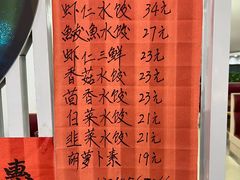 虾仁水饺 34元
鲅魚水饺 27元
虾仁三鮮 23元
香菇水饺 23元
茴香水饺 23元
白菜水饺 21元
韭菜水饺 21元
胡萝卜素 19元
惠